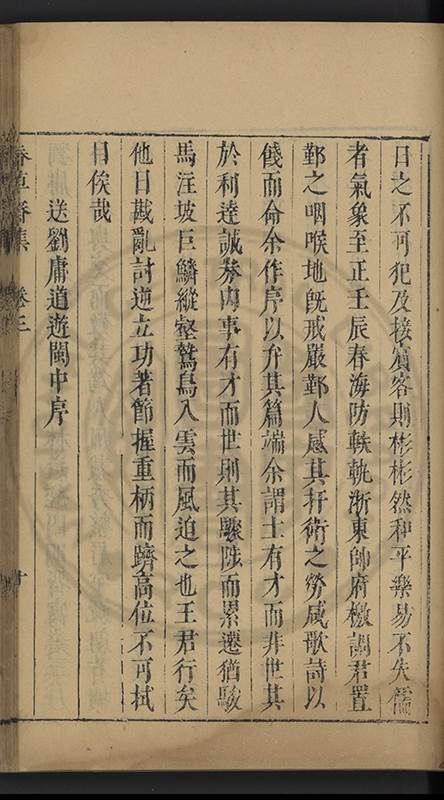 日之不可犯及接賓客則彬彬然和平樂易不失儒
者氣象至正壬辰春海防軼軌浙東帥府檄調君置
鄞之咽喉地旣戒嚴鄞人感其扞衛之勞咸歌詩以
餞而命余作序以弁其篇端余謂士有才而非世其
於利達誠分內事有才而世則其驟陟而累遷猶駿
馬注坡巨鱗縱壑鷙鳥入雲而風迫之也王君行矣
他日戡亂討逆立功著節握重柄而躋高位不可拭
目俟哉
送劉庸道遊閩中序
春草齋集 卷三 十